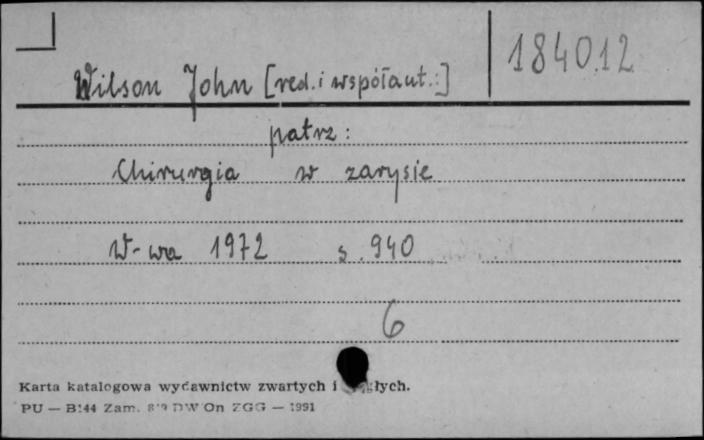 Wilson John [red. i współaut.:]
184012
patrz:
Chirurgia w zarysie
W-wa 1972 s. 940
6
Karta katalogowa wydawnictw zwartych i
PU — B144 Zam. DW On ZGG — 1991